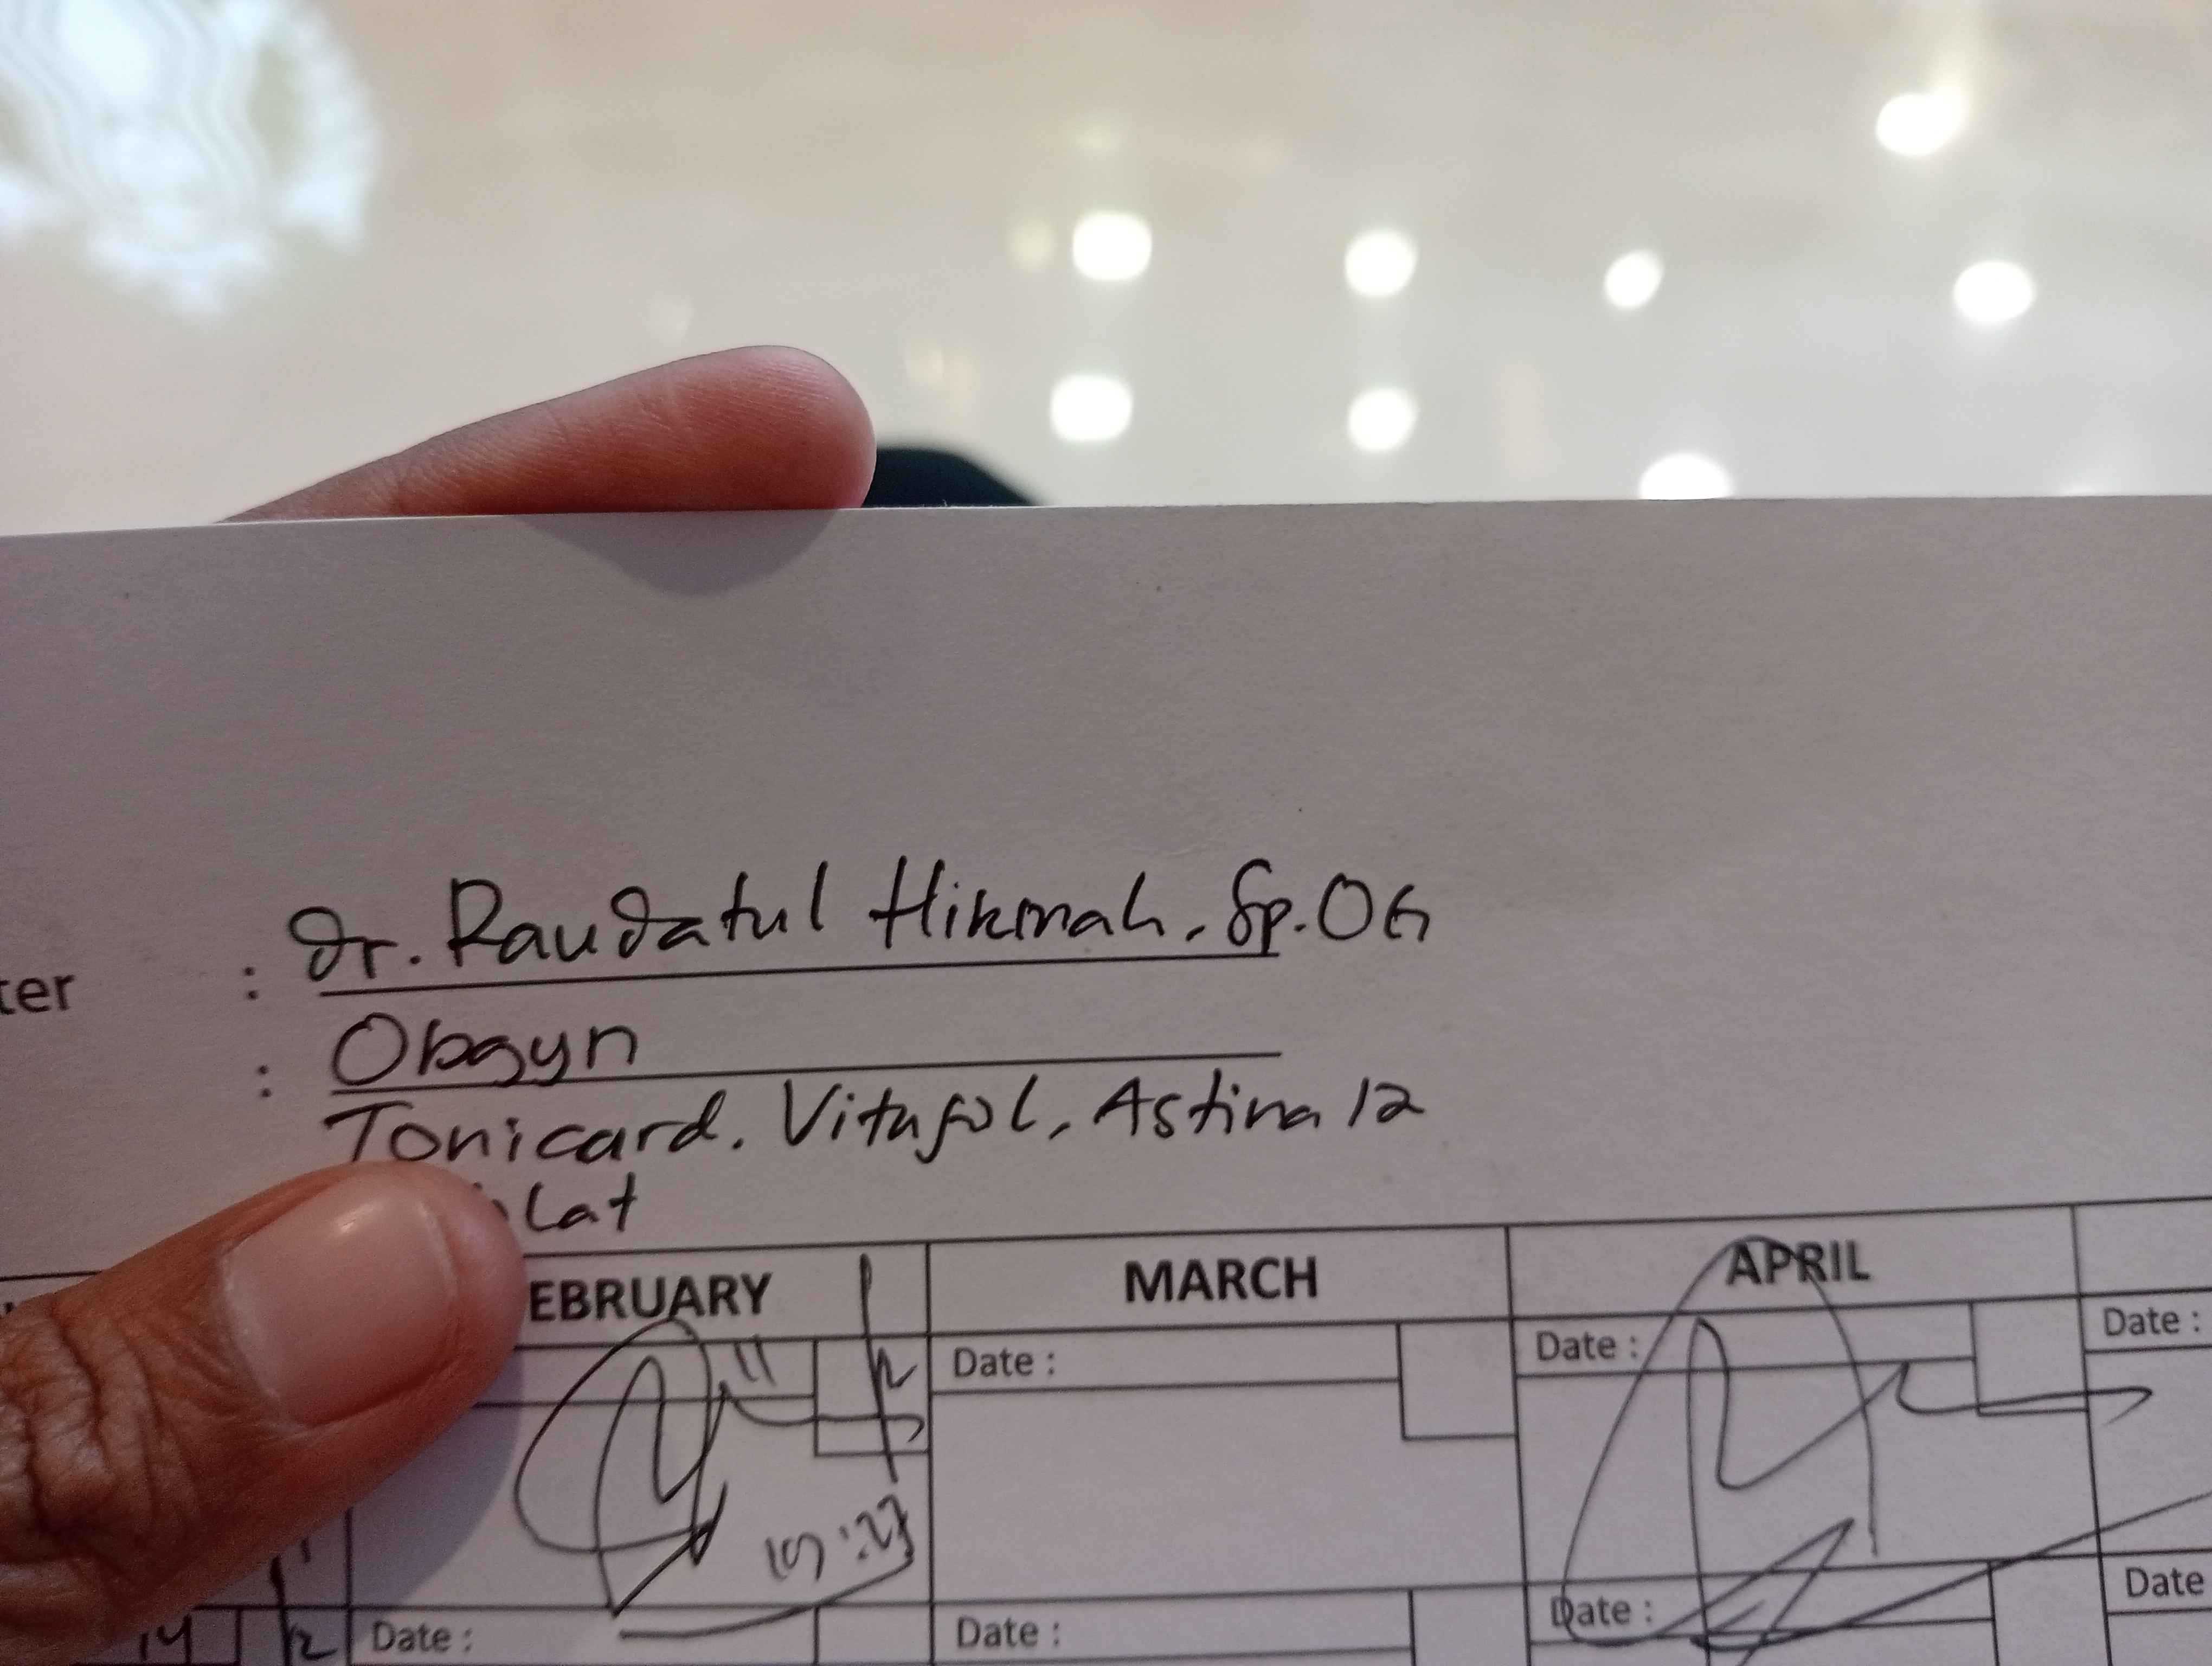 ter : dr. Raudatul Hikmah, Sp.OG
: Obgyn
Tonicard. Vitafol, Astina 12
lat
EBRUARY MARCH APRIL
11 Date : Date : Date :
14 Date : Date : Date : Date